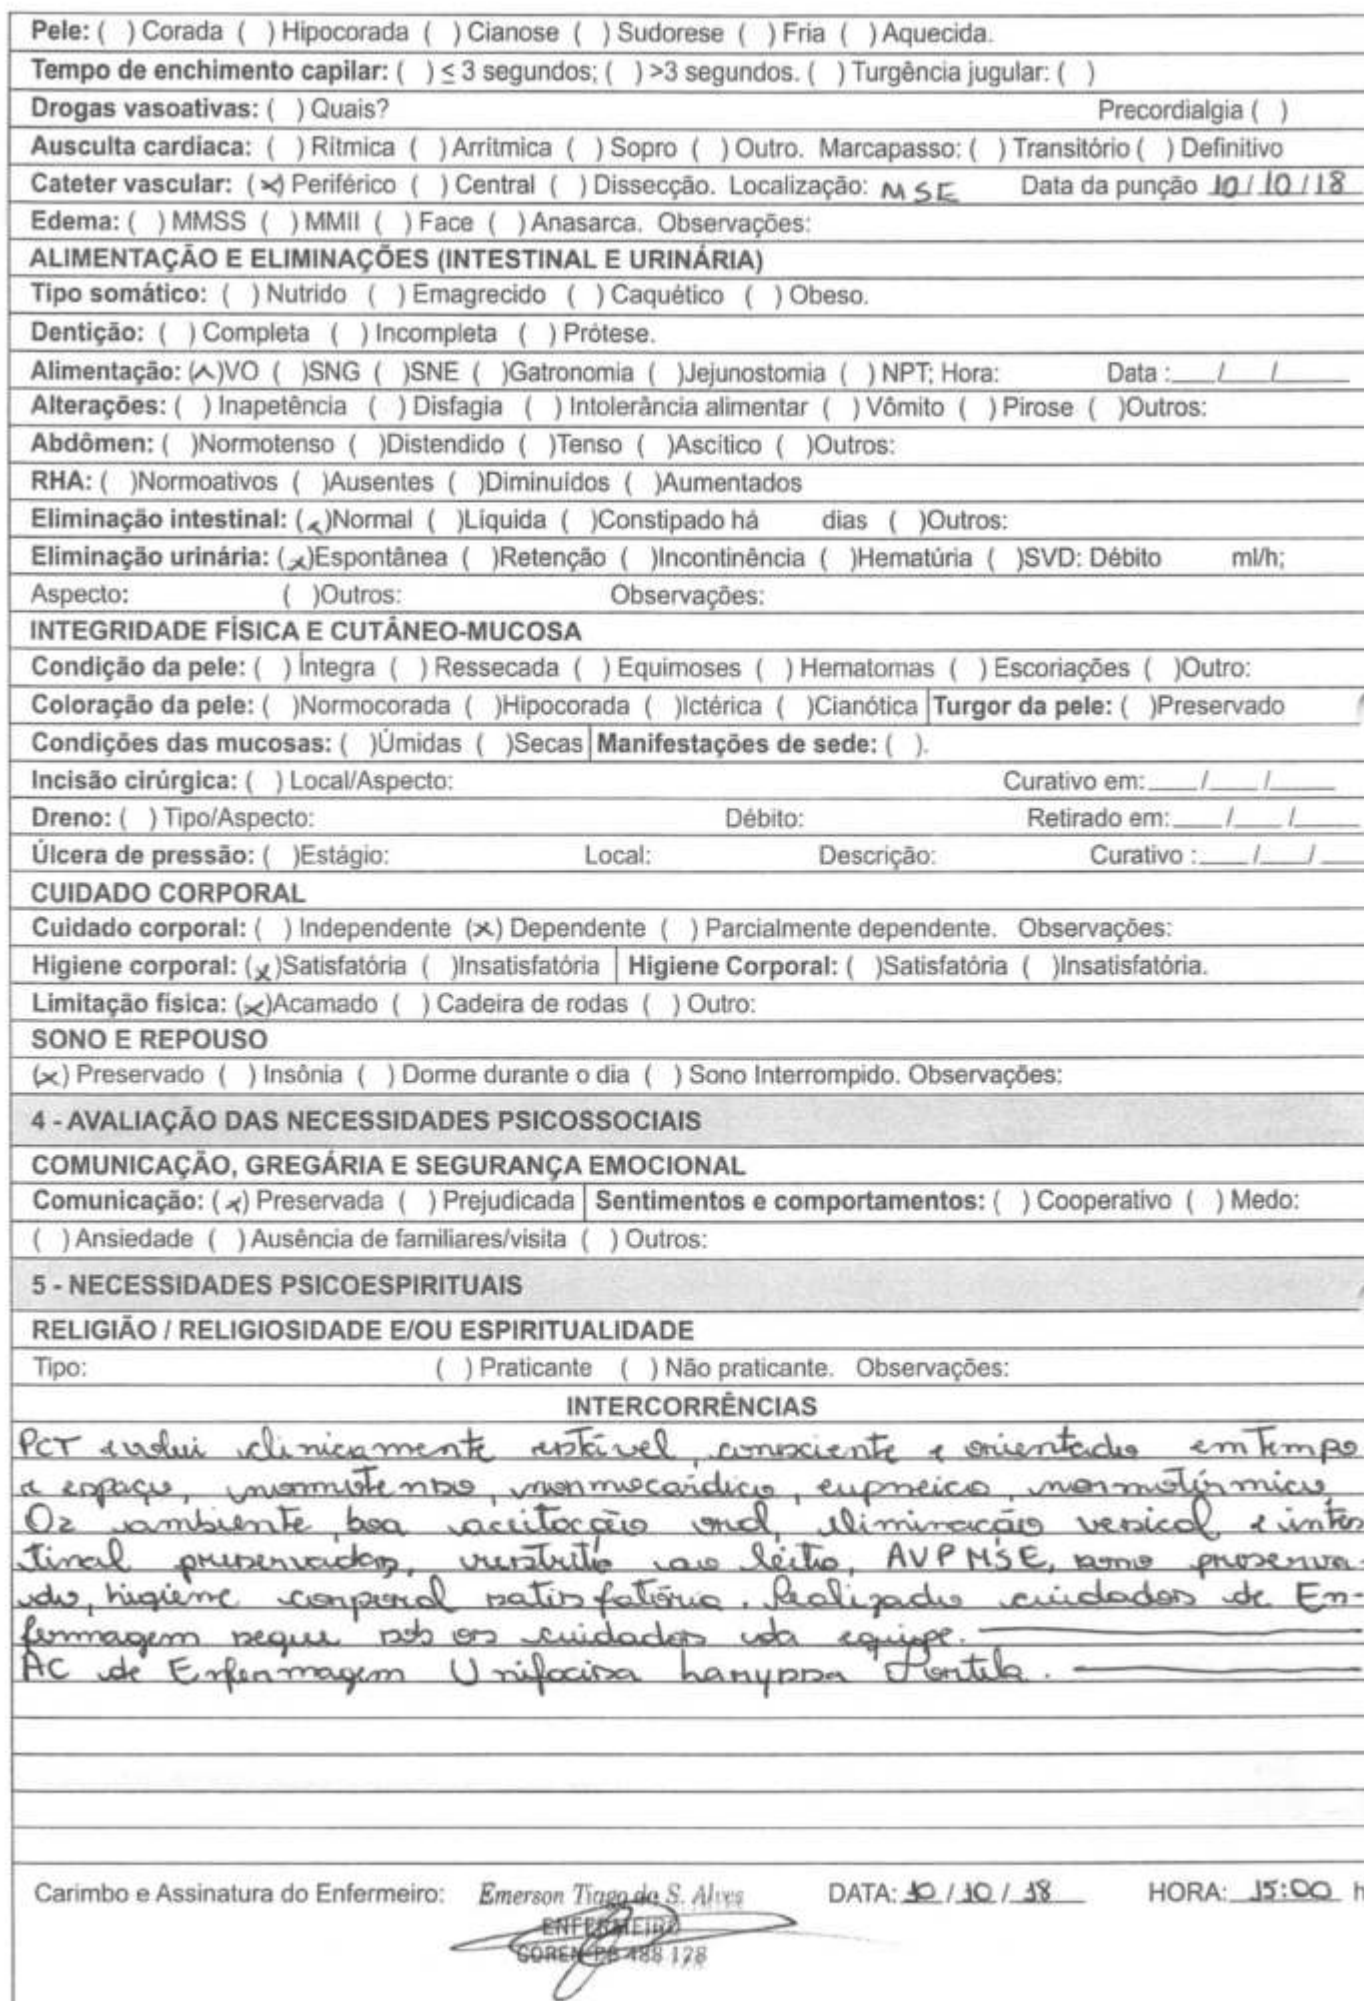 Pele: ( ) Corada ( ) Hipocorada ( ) Cianose ( ) Sudorese ( ) Fria ( ) Aquecida.
Tempo de enchimento capilar: ( ) ≤ 3 segundos; ( ) >3 segundos. ( ) Turgência jugular: ( )
Drogas vasoativas: ( ) Quais? Precordialgia ( )
Ausculta cardiaca: ( ) Rítmica ( ) Arritmica ( ) Sopro ( ) Outro. Marcapasso: ( ) Transitório ( ) Definitivo
Cateter vascular: (x) Periférico ( ) Central ( ) Dissecção. Localização: MSE Data da punção 10/10/18
Edema: ( ) MMSS ( ) MMII ( ) Face ( ) Anasarca. Observações:
ALIMENTAÇÃO E ELIMINAÇÕES (INTESTINAL E URINÁRIA)
Tipo somático: ( ) Nutrido ( ) Emagrecido ( ) Caquético ( ) Obeso.
Dentição: ( ) Completa ( ) Incompleta ( ) Prótese.
Alimentação: (x)VO ( )SNG ( )SNE ( )Gatronomia ( )Jejunostomia ( ) NPT; Hora: Data :___/___/___
Alterações: ( ) Inapetência ( ) Disfagia ( ) Intolerância alimentar ( ) Vômito ( ) Pirose ( )Outros:
Abdômen: ( )Normotenso ( )Distendido ( )Tenso ( )Ascítico ( )Outros:
RHA: ( )Normoativos ( )Ausentes ( )Diminuídos ( )Aumentados
Eliminação intestinal: (x)Normal ( )Líquida ( )Constipado há dias ( )Outros:
Eliminação urinária: (x)Espontânea ( )Retenção ( )Incontinência ( )Hematúria ( )SVD: Débito ml/h;
Aspecto: ( )Outros: Observações:
INTEGRIDADE FÍSICA E CUTÂNEO-MUCOSA
Condição da pele: ( ) Íntegra ( ) Ressecada ( ) Equimoses ( ) Hematomas ( ) Escoriações ( )Outro:
Coloração da pele: ( )Normocorada ( )Hipocorada ( )Ictérica ( )Cianótica Turgor da pele: ( )Preservado
Condições das mucosas: ( )Úmidas ( )Secas Manifestações de sede: ( ).
Incisão cirúrgica: ( ) Local/Aspecto: Curativo em:___/___/___
Dreno: ( ) Tipo/Aspecto: Débito: Retirado em:___/___/___
Úlcera de pressão: ( )Estágio: Local: Descrição: Curativo :___/___/___
CUIDADO CORPORAL
Cuidado corporal: ( ) Independente (x) Dependente ( ) Parcialmente dependente. Observações:
Higiene corporal: (x)Satisfatória ( )Insatisfatória Higiene Corporal: ( )Satisfatória ( )Insatisfatória.
Limitação física: (x)Acamado ( ) Cadeira de rodas ( ) Outro:
SONO E REPOUSO
(x) Preservado ( ) Insônia ( ) Dorme durante o dia ( ) Sono Interrompido. Observações:
4 - AVALIAÇÃO DAS NECESSIDADES PSICOSSOCIAIS
COMUNICAÇÃO, GREGÁRIA E SEGURANÇA EMOCIONAL
Comunicação: (x) Preservada ( ) Prejudicada Sentimentos e comportamentos: ( ) Cooperativo ( ) Medo:
( ) Ansiedade ( ) Ausência de familiares/visita ( ) Outros:
5 - NECESSIDADES PSICOESPIRITUAIS
RELIGIÃO / RELIGIOSIDADE E/OU ESPIRITUALIDADE
Tipo: ( ) Praticante ( ) Não praticante. Observações:
INTERCORRÊNCIAS
PCT evolui clinicamente estável, consciente e orientado em tempo
e espaço, normotenso, normocárdico, eupneico, normotérmico
O2 ambiente, boa aceitação oral, eliminação vesical e intes
tinal preservados, restrito ao leito, AVP MSE, sono preserva-
do, higiene corporal satisfatória. Realizado cuidados de En-
fermagem segue sob os cuidados da equipe.
AC de Enfermagem Unifacisa Laryssa Portela.
Carimbo e Assinatura do Enfermeiro: Emerson Tiago da S. Alves DATA: 10/10/18 HORA: 15:00 h
ENFERMEIRO
COREN-PB 488.128